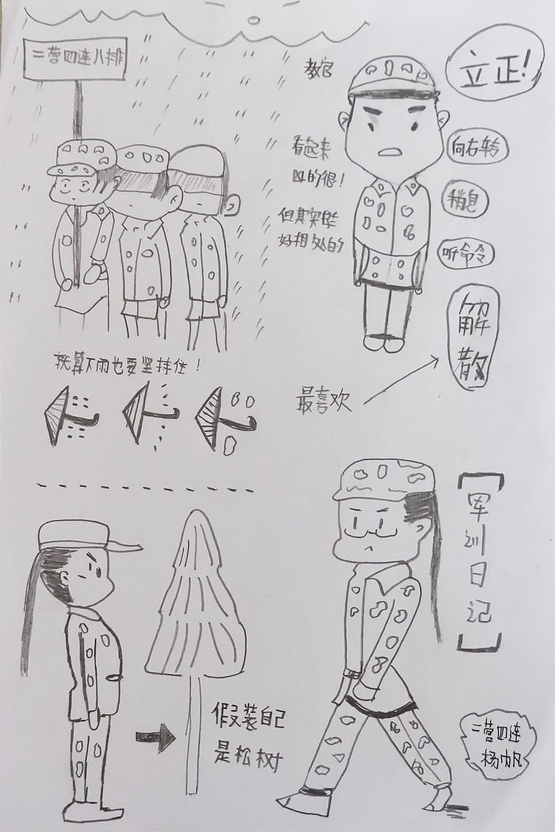 二营四连八排
教官
立正!
看起来
凶的很!
但其实挺
好相处的
向右转
稍息
听命令
解
散
最喜欢
就算下雨也要坚持住!
军
训
日
记
假装自己
是松树
二营四连
杨帆